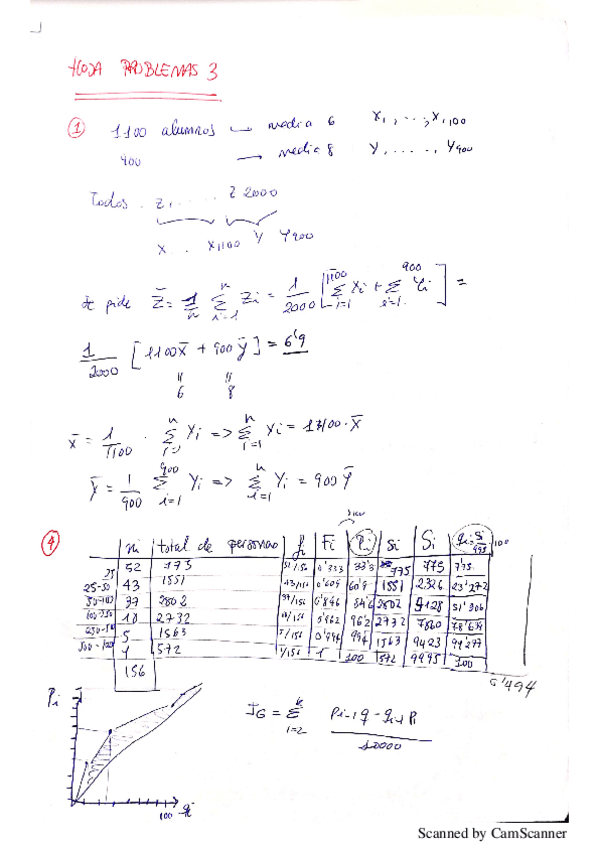 HOJA PROBLEMAS 3
① 1100 alumnos → media 6 X₁, ..., X₁₁₀₀
900 → media 8 Y, ....., Y₉₀₀
Todos. Z, ..... Z 2000
X .. X₁₁₀₀ Y Y₉₀₀
Se pide Z̄ = 1/n Σ i=1 n Zi = 1/2000 [ Σ i=1 1100 Xi + Σ i=1 900 Yi ] =
1/2000 [1100 x̄ + 900 ȳ] = 6'9
" "
6 8
x̄ = 1/1100 · Σ Xi => Σ i=1 n Xi = 1100 · X̄
Ȳ = 1/900 Σ i=1 900 Yi => Σ i=1 n Yi = 900 Ȳ
④ ni | total de personas | fi | Fi | Pi | si | Si | 100
25 | 52 | 775 | 52/156 | 0'333 | 33'3 | 775 | 775
25-50 | 43 | 1551 | 43/156 | 0'609 | 60'9 | 1551 | 2326 | 23'272
37 | 2802 | 37/156 | 0'846 | 84'6 | 2802 | 5128 | 51'306
18 | 2732 | 18/156 | 0'962 | 96'2 | 2732 | 7860 | 78'639
5 | 1563 | 5/156 | 0'994 | 99'4 | 1563 | 9423 | 99'277
1 | 572 | 1/156 | 1 | 100 | 572 | 9995 | 100
156
Pi
IG = Σ i=2 k
10000
100 qi
Scanned by CamScanner